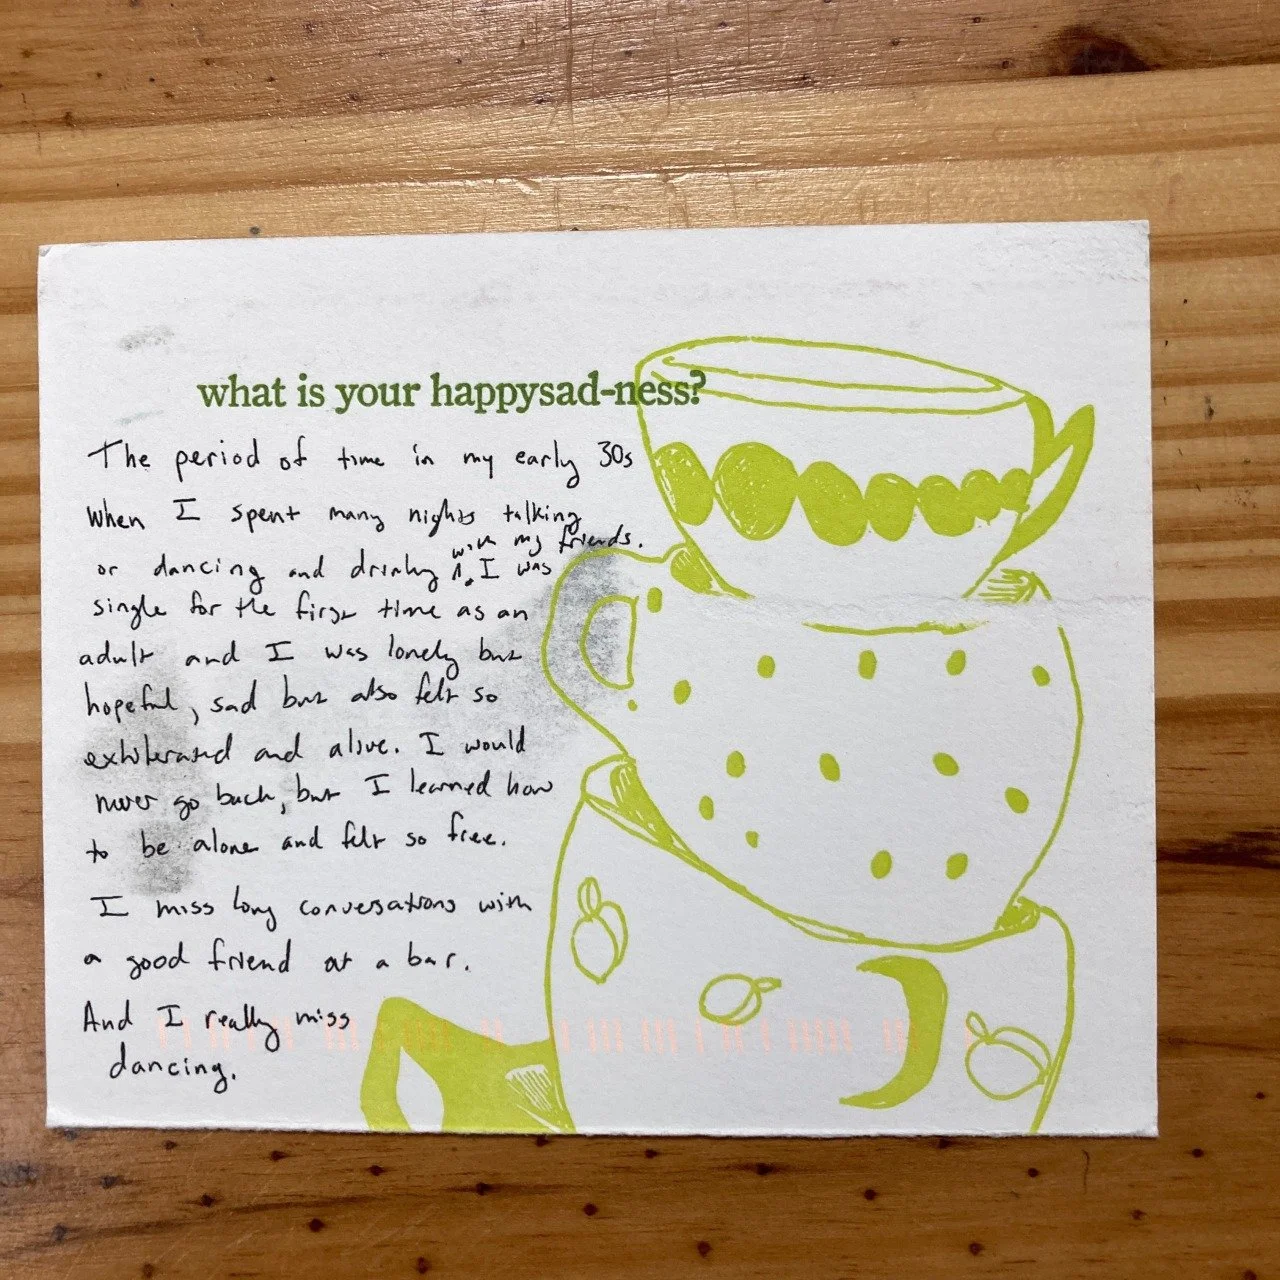 what is your happysad-ness?
The period of time in my early 30s
when I spent many nights talking
with my friends.
or dancing and drinking ^. I was
single for the first time as an
adult and I was lonely but
hopeful, sad but also felt so
exhilerated and alive. I would
never go back, but I learned how
to be alone and felt so free.
I miss long conversations with
a good friend at a bar.
And I really miss
dancing.